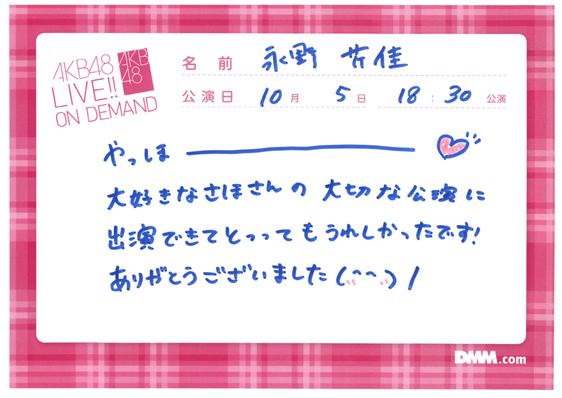 AKB48
LIVE!!
ON DEMAND
AKB
48
名前 永野 芹佳
公演日 10月 5日 18:30 公演
やっほ ー
大好きなさほさんの 大切な公演に
出演できてとっってもうれしかったです!
ありがとうございました (^^) /
DMM.com